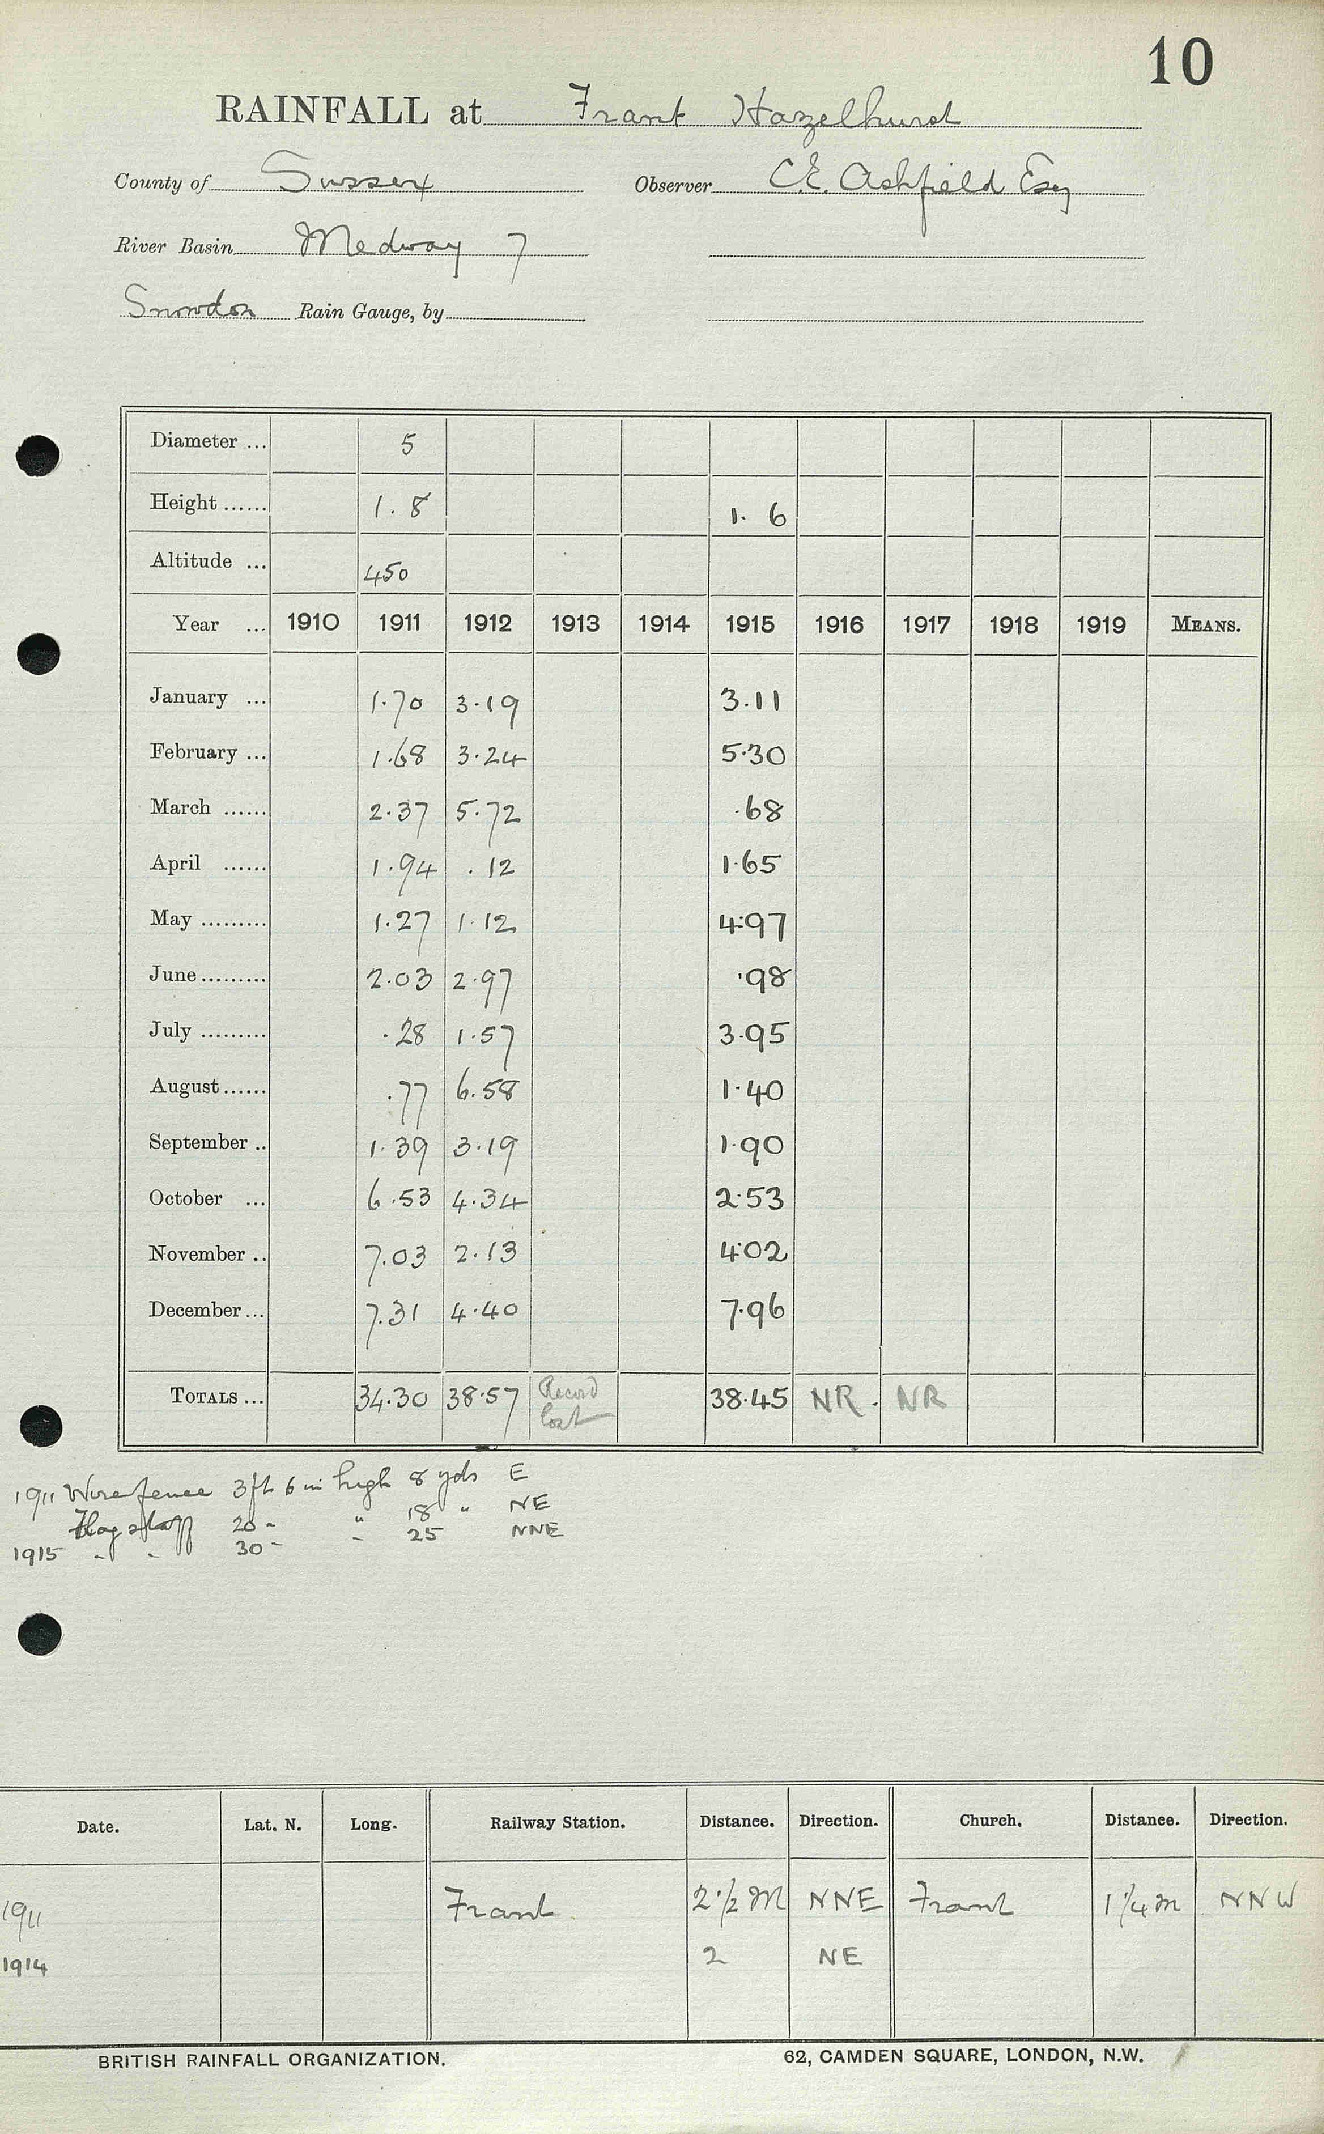 10
RAINFALL at Frant Hazelhurst
County of Sussex Observer C.E. Ashfield Esq
River Basin Medway 7
Snowdon Rain Gauge, by
Diameter ... 5
Height ...... 1. 8 1. 6
Altitude ... 450
Year ... 1910 1911 1912 1913 1914 1915 1916 1917 1918 1919 MEANS.
January ... 1.70 3.19 3.11
February ... 1.68 3.24 5.30
March ...... 2.37 5.72 .68
April ...... 1.94 .12 1.65
May ......... 1.27 1.12 4.97
June ......... 2.03 2.97 .98
July ......... .28 1.57 3.95
August ...... .77 6.58 1.40
September .. 1.39 3.19 1.90
October ... 6.53 4.34 2.53
November .. 7.03 2.13 4.02
December ... 7.31 4.40 7.96
TOTALS ... 34.30 38.57 Record lost 38.45 NR. NR
1911 Wire fence 3ft 6 in high 8 yds E
Flagstaff 20 - " 18 " NE
1915 " " 30 - " 25 NNE
Date. Lat. N. Long. Railway Station. Distance. Direction. Church. Distance. Direction.
1911 Frant 2 1/2 M NNE Frant 1 1/4 m NNW
1914 2 NE
BRITISH RAINFALL ORGANIZATION. 62, CAMDEN SQUARE, LONDON, N.W.